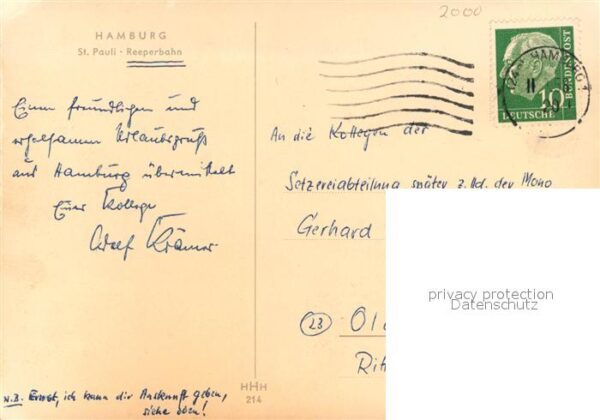 2000
HAMBURG
St. Pauli - Reeperbahn
(24a) HAMBURG 1
DEUTSCHE
BUNDESPOST
10
Einen freundlichen und
erholsamen Urlaubsgruß
aus Hamburg übermittelt
Euer Kollege
Adolf Krämer
An die Kollegen der
Setzereiabteilung später z. Hd. der Mono
Gerhard
(23) Ol
Rit
privacy protection
Datenschutz
HHH
214
N.B. Ernst, ich kann dir Auskunft geben,
siehe oben!